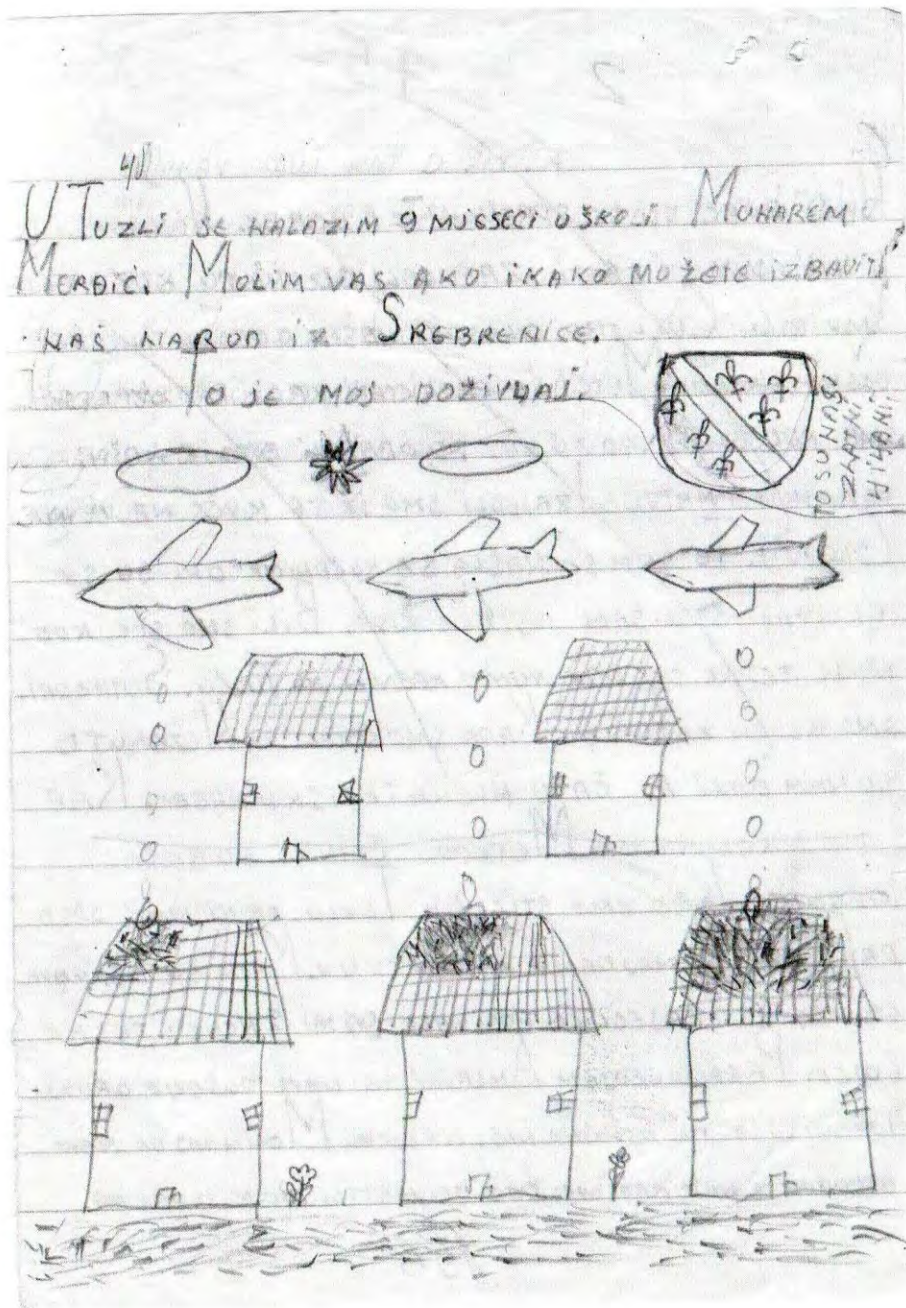 4)
U TUZLI SE NALAZIM 9 MJESECI U ŠKOLI MUHAREM
MERĐIĆ. MOLIM VAS AKO IKAKO MOŽETE IZBAVITI
NAŠ NAROD IZ SREBRENICE.
TO JE MOJ DOŽIVLJAJ.
TO SU NAŠI
ZLATNI
LJILJANI.